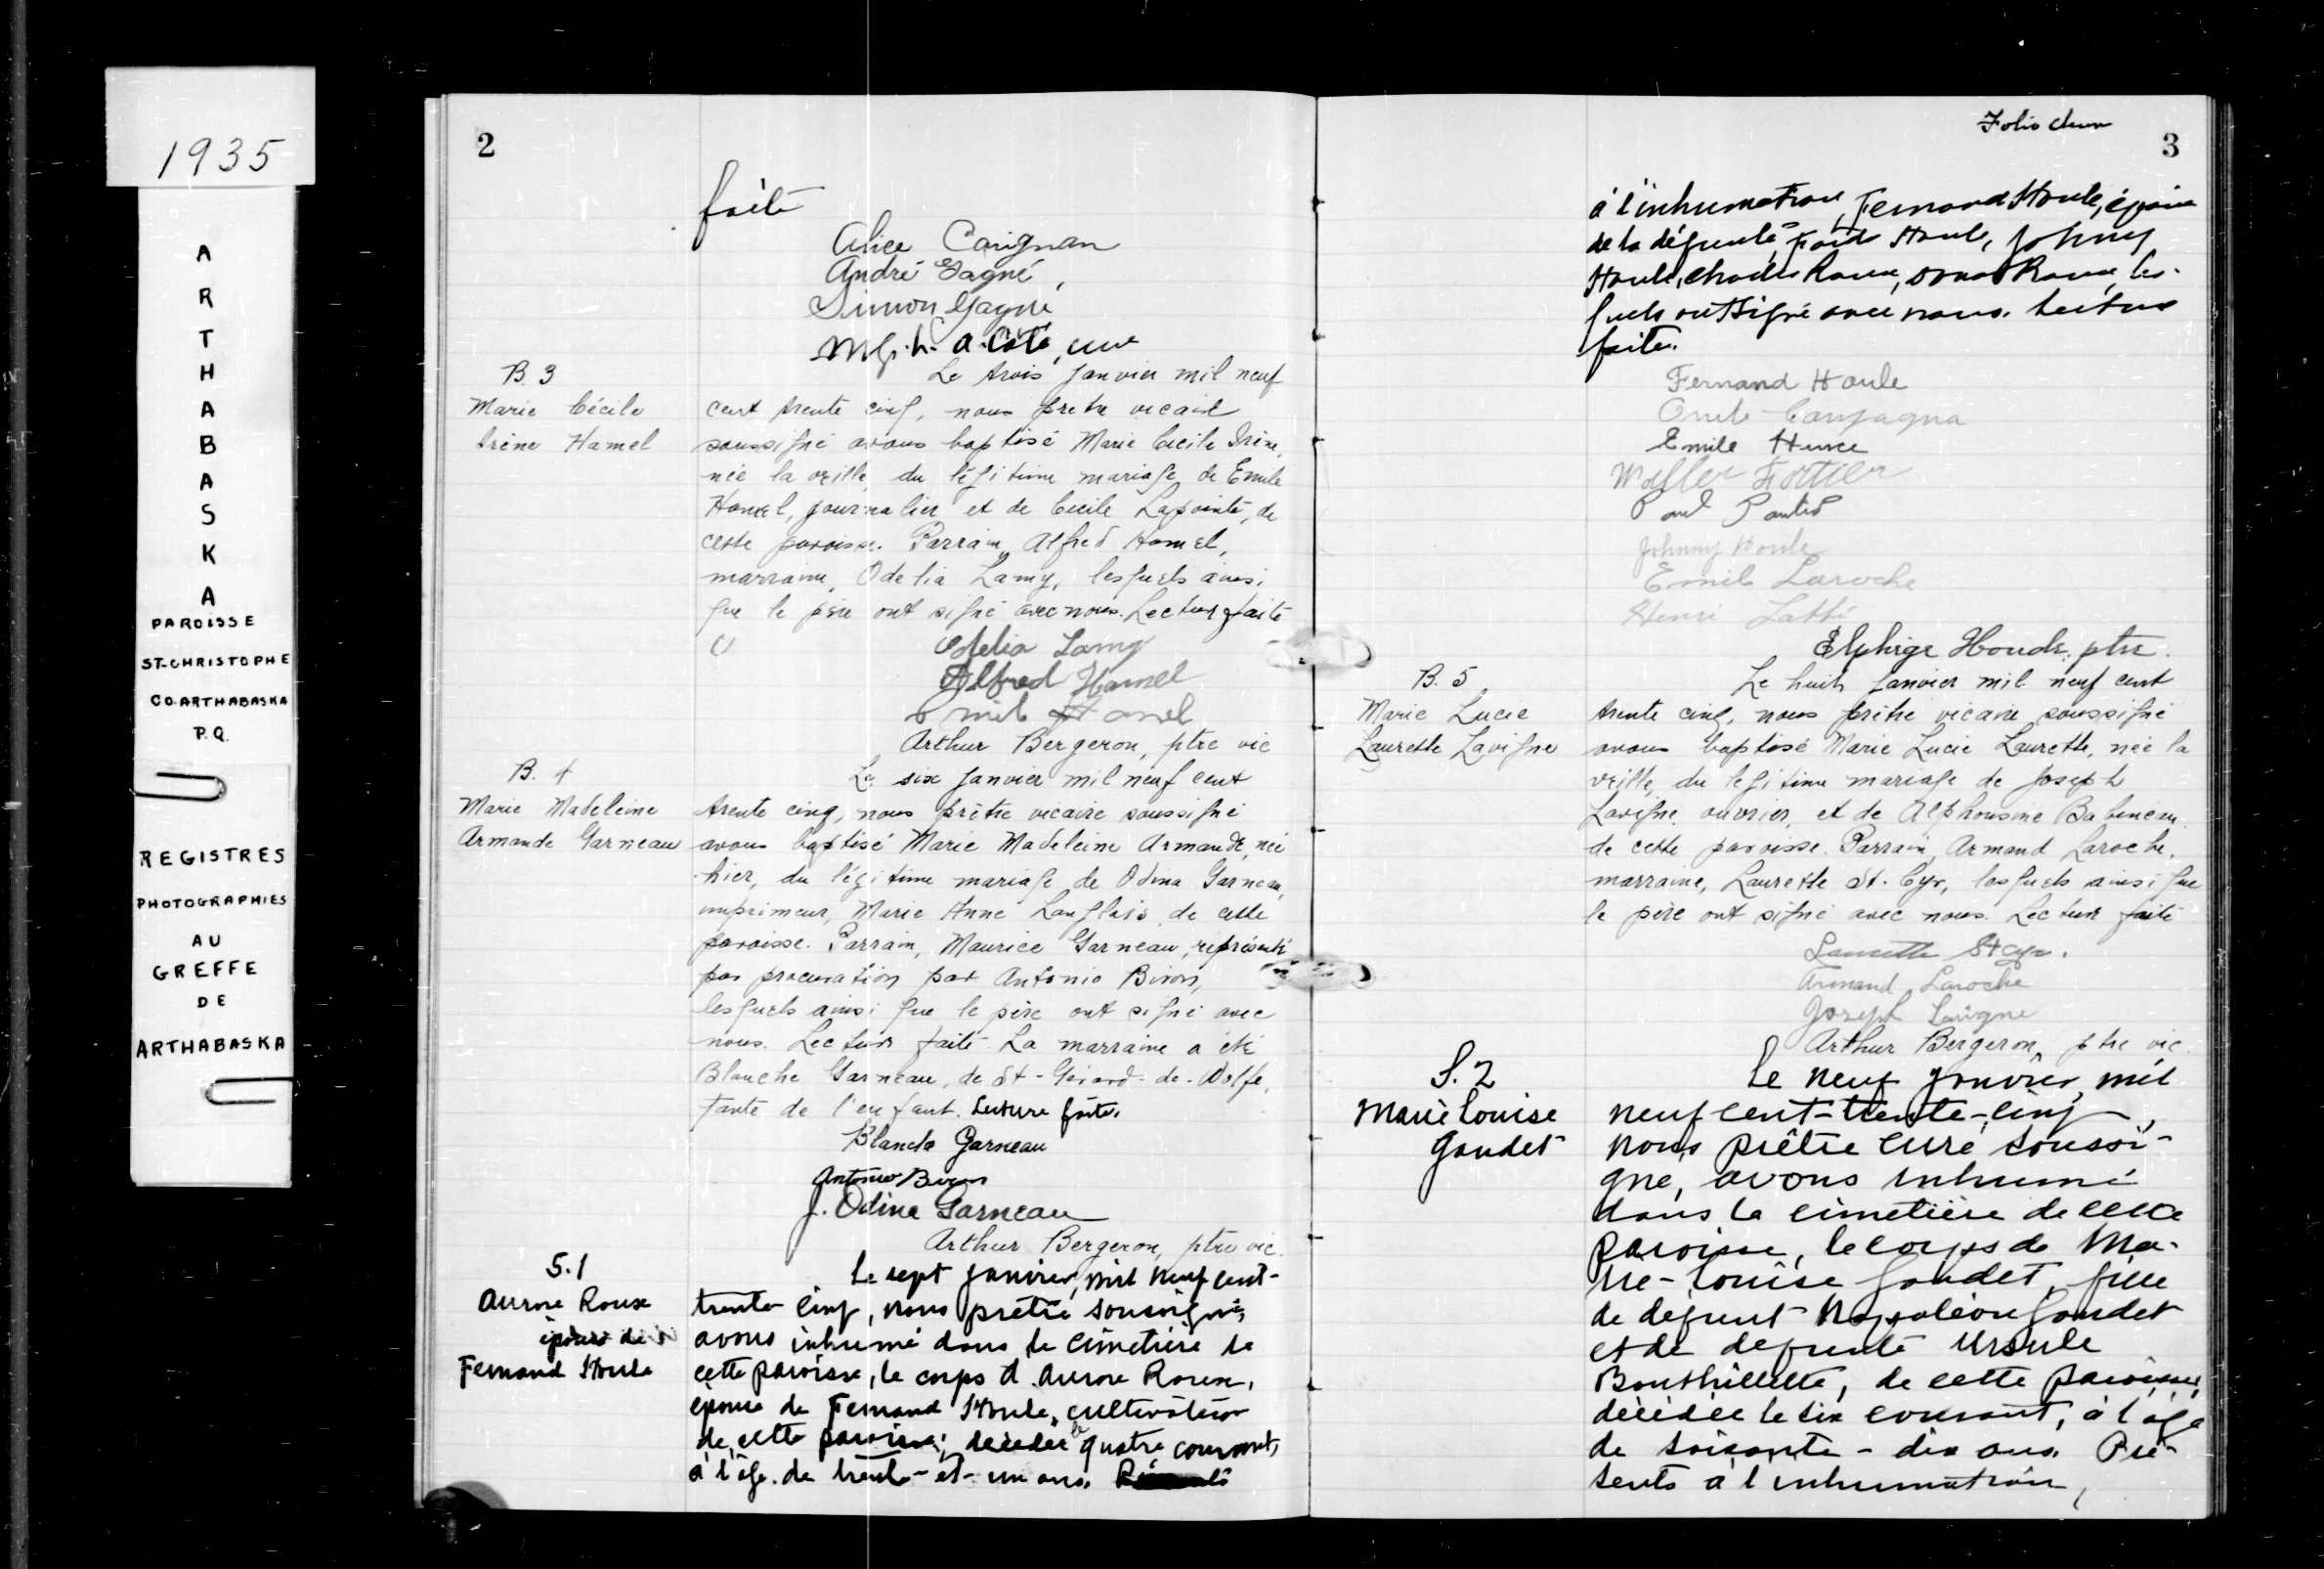 1935
ARTHABASKA
PAROISSE
ST-CHRISTOPHE
CO. ARTHABASKA
P.Q.
REGISTRES
PHOTOGRAPHIES
AU
GREFFE
DE
ARTHABASKA
2
faite
Alice Carignan
André Gagné,
Simon Gagné
Mgr. L. A. Côté, curé
B. 3
Marie Cécile
Irène Hamel
Le trois janvier mil neuf
cent trente cinq, nous prêtre vicaire
soussigné avons baptisé Marie Cécile Irène,
née la veille, du légitime mariage de Emile
Hamel, journalier et de Cécile Lapointe, de
cette paroisse. Parrain, Alfred Hamel,
marraine, Odelia Lamy, lesquels ainsi
que le père ont signé avec nous. Lecture faite
Odelia Lamy
Alfred Hamel
Emile Hamel
Arthur Bergeron, ptre vic
B. 4
Marie Madeleine
Armande Garneau
Le six janvier mil neuf cent
trente cinq, nous prêtre vicaire soussigné
avons baptisé Marie Madeleine Armande, née
hier, du légitime mariage de Odina Garneau,
imprimeur, Marie Anne Langlais de cette
paroisse. Parrain, Maurice Garneau, représenté
par procuration par Antonio Biron,
lesquels ainsi que le père ont signé avec
nous. Lecture faite. La marraine a été
Blanche Garneau, de St-Gérard-de-Wolfe,
tante de l'enfant. Lecture faite.
Blanche Garneau
Antonio Biron
J. Odina Garneau
Arthur Bergeron, ptre vic.
S. 1
Aurore Roux
épouse de
Fernand Houle
Le sept janvier, mil neuf cent-
trente cinq, nous prêtre soussigné,
avons inhumé dans le cimetière de
cette paroisse, le corps d'Aurore Roux,
épouse de Fernand Houle, cultivateur
de cette paroisse; décédée le quatre courant,
à l'âge de trente-et-un ans.
Folio deux
3
à l'inhumation, Fernand Houle, époux
de la défunte, Houle, Johnny
Houle, Charles Roux, Roux, les-
quels ont signé avec nous. Lecture
faite.
Fernand Houle
Campagna
Emile
Walter Fortier
Paul
Johnny Houle
Emile Laroche
Henri
Elphège Houde, ptre.
B. 5
Marie Lucie
Laurette Lavigne
Le huit janvier mil neuf cent
trente cinq, nous prêtre vicaire soussigné
avons baptisé Marie Lucie Laurette, née la
veille, du légitime mariage de Joseph
Lavigne, ouvrier, et de Alphonsine Babineau
de cette paroisse. Parrain, Armand Laroche,
marraine, Laurette St. Cyr, lesquels ainsi que
le père ont signé avec nous. Lecture faite
Laurette St Cyr.
Armand Laroche
Joseph Lavigne
Arthur Bergeron, ptre vic.
S. 2
Marie Louise
Gaudet
Le neuf janvier, mil
neuf cent-trente-cinq,
nous prêtre curé soussi-
gné, avons inhumé
dans le cimetière de cette
paroisse, le corps de Ma-
rie-Louise Gaudet, fille
de defunt Napoléon Gaudet
et de defunte Ursule
Bouthillette, de cette paroisse,
décédée le six courant, à l'âge
de soixante-dix ans. Pré-
sents à l'inhumation,